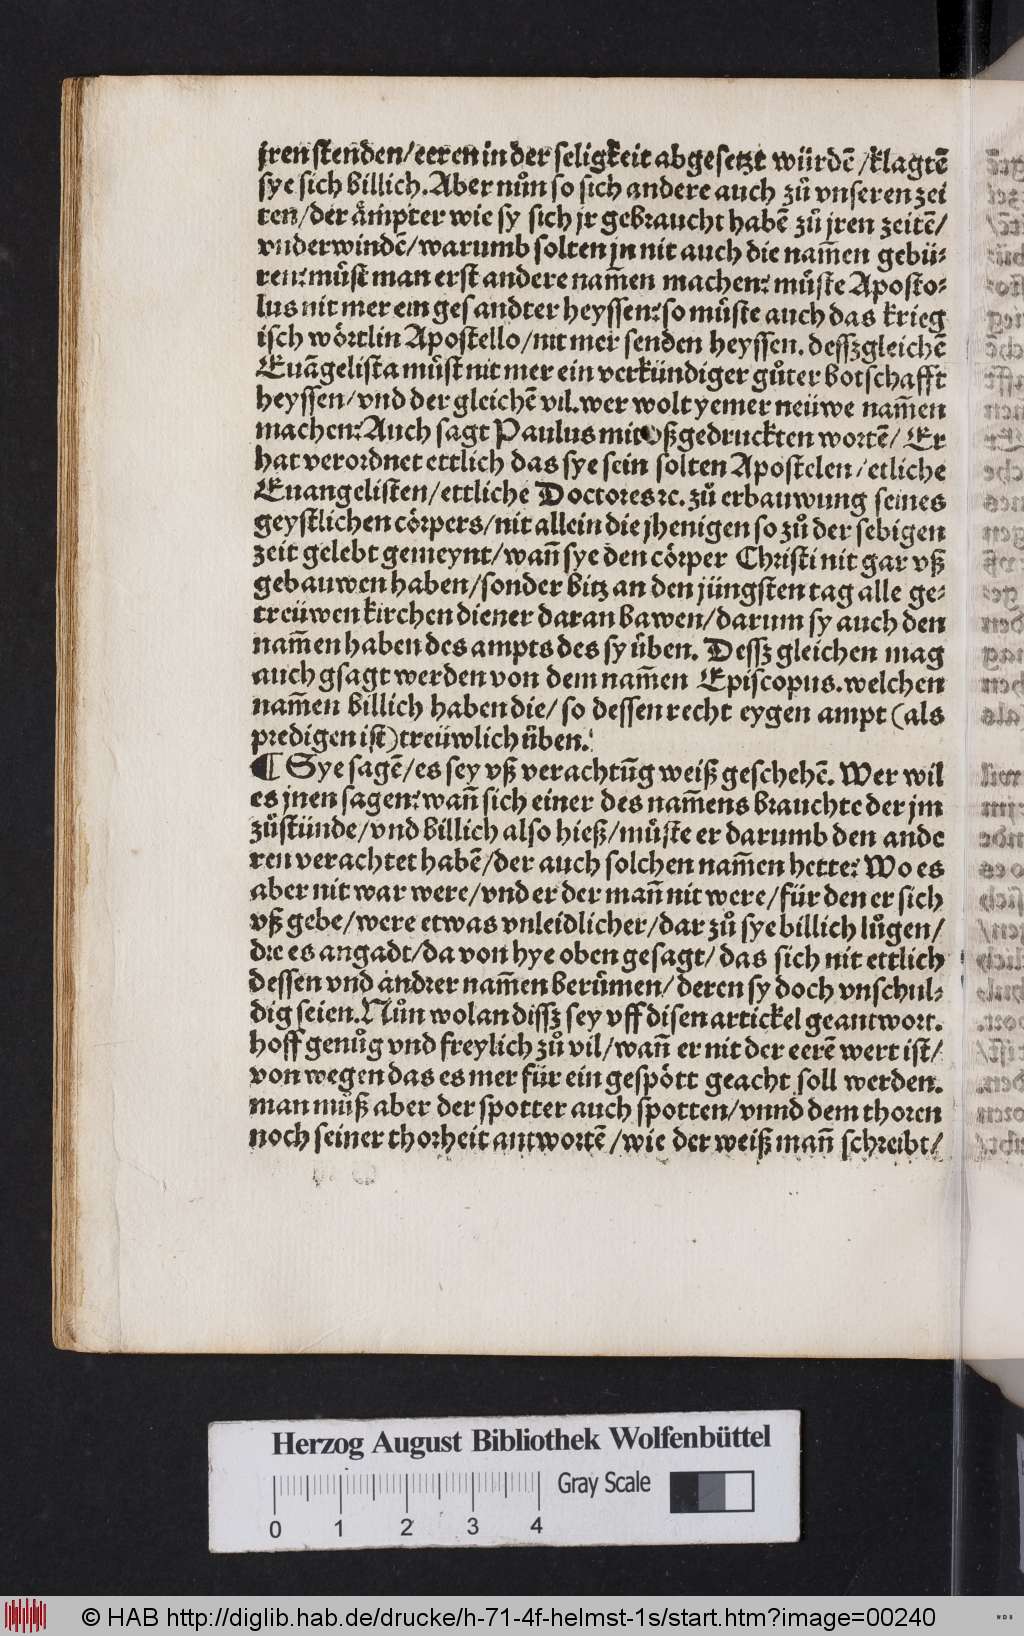 jren stenden/eeren in der seligkeit abgesetzt würdē/klagtē
sye sich billich. Aber nůn so sich andere auch zů vnseren zei
ten/der aͤmpter wie sy sich jr gebraucht habē zů jren zeitē/
vnderwindē/warumb solten jn nit auch die nam̄en gebü⸗
ren: muͤst man erst andere nam̄en machen: muͤste Aposto⸗
lus nit mer ein gesandter heyssen: so muͤste auch das krieg
isch woͤrtlin Apostello/nit mer senden heyssen. desßgleichē
Euāgelista muͤst nit mer ein verkündiger gůter botschafft
heyssen/vnd der gleichē vil. wer wolt yemer neüwe nam̄en
machen: Auch sagt Paulus mit ßgedruckten wortē/Er
hat verordnet ettlich das sye sein solten Apostelen/etliche
Euangelisten/ettliche Doctores ꝛc. zů erbauwung seines
geystlichen coͤrpers/nit allein die jhenigen so zů der sebigen
zeit gelebt gemeynt/wan̄ sye den coͤrper Christi nit gar vß
gebauwen haben/sonder bitz an den jüngsten tag alle ge⸗
treüwen kirchen diener daran bawen/darum sy auch den
nam̄en haben des ampts des sy uͤben. Desßgleichen mag
auch gsagt werden von dem nam̄en Episcopus. welchen
nam̄en billich haben die/so dessen recht eygen ampt (als
predigen ist) treüwlich uͤben.
¶ Sye sagē/es sey vß verachtūg weiß geschehē. Wer wil
es jnen sagen: wan̄ sich einer des nam̄ens brauchte der jm
zůstünde/vnd billich also hieß/muͤste er darumb den ande
ren verachtet habē/der auch solchen nam̄en hette: Wo es
aber nit war were/vnd er der man̄ nit were/für den er sich
vß gebe/were etwas vnleidlicher/dar zů sye billich lůgen/
die es angadt/da von hye oben gesagt/das sich nit ettlich
dessen vnd andrer nam̄en beruͤmen/deren sy doch vnschul⸗
dig seien. Nůn wolan disß sey vff disen artickel geantwort.
hoff genůg vnd freylich zů vil/wan̄ er nit der eerē wert ist/
von wegen das es mer für ein gespoͤtt geacht soll werden.
man můß aber der spotter auch spotten/vnnd dem thoren
noch seiner thorheit antwortē/wie der weiß man̄ schreibt/
Herzog August Bibliothek Wolfenbüttel
Gray Scale
0 1 2 3 4
© HAB http://diglib.hab.de/drucke/h-71-4f-helmst-1s/start.htm?image=00240